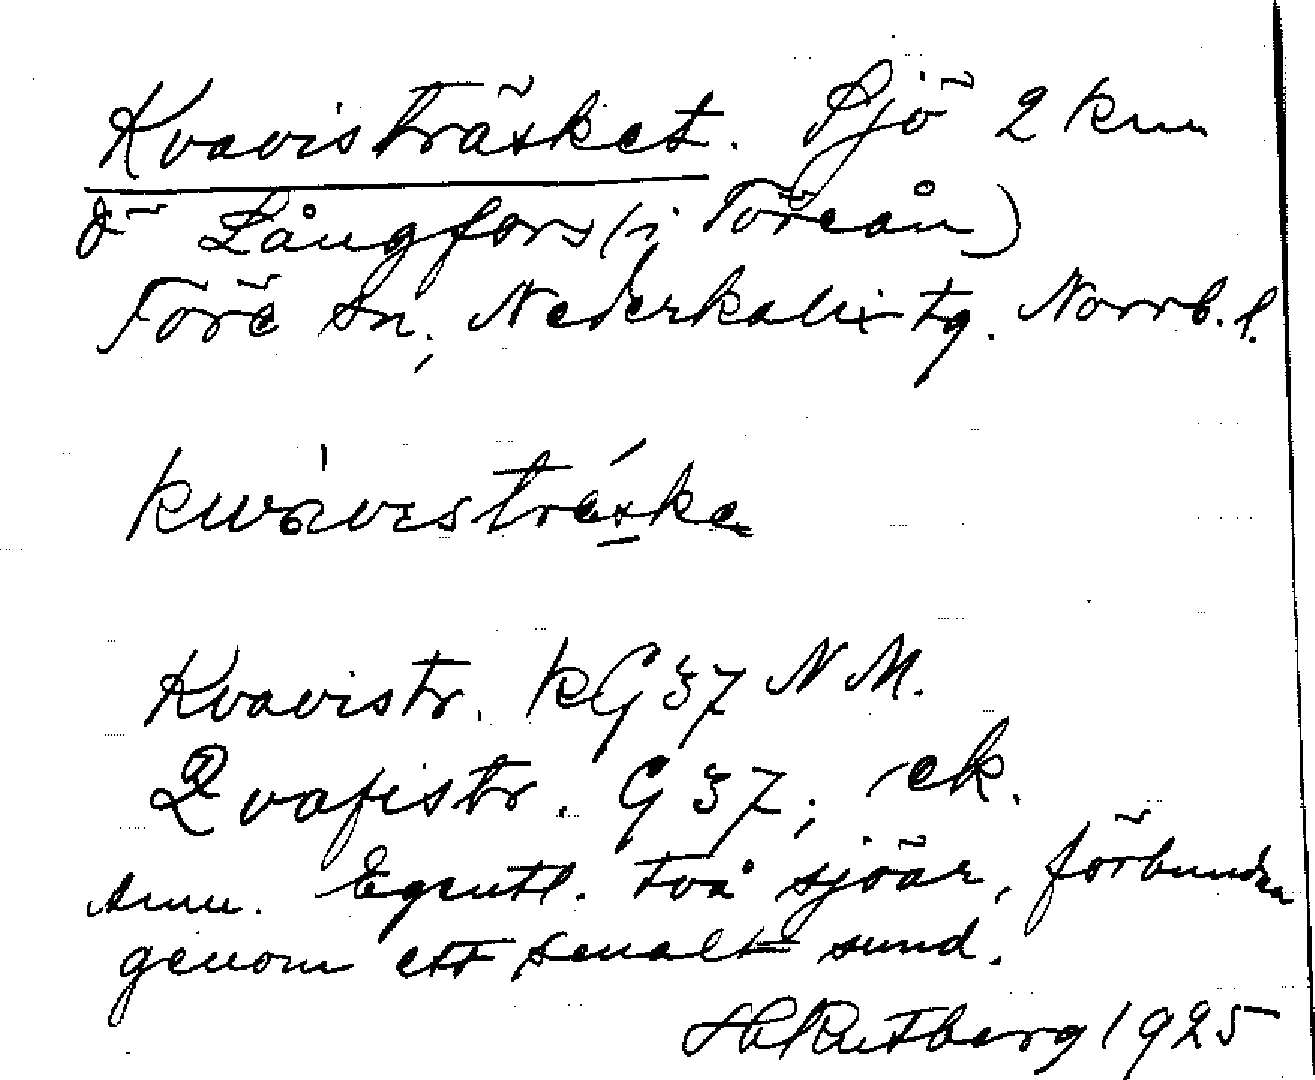 Kvavisträsket. Sjö 2 km
ö Långfors (i Töreån)
Töre sn, Nederkalix tg. Norrb. l.
kwávestrǽske
Kvavistr. KG 37 NM.
Qvafistr. G 37; ek.
Anm. Egentl. två sjöar, förbundna
genom ett smalt sund.
H Rutberg 1925